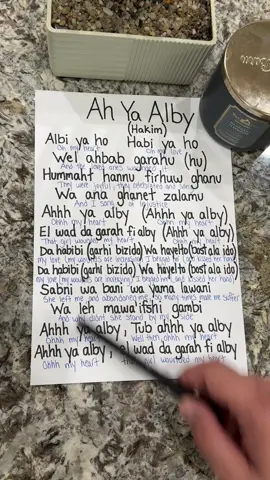 Ah Ya Alby
(Hakim)
Albi ya ho Habi ya ho
Oh my heart Oh my love
Wel ahbab garahu (hu)
And the loved ones wounded it
Hummaht hannu firhuw ghanu
They were joyful, they celebrated and sang
Wa ana ghanet zalamu
And I sang an injustice
Ahhh ya alby (Ahhh ya alby)
Ohhh my heart Ohhh my heart
El wad da garah fi alby (Ahhh ya alby)
That girl wounded my heart Ohhh my heart
Da habibi (garhi bizido) Wa hayelto (bost ala ido)
my love (my wounds are increasing) I begged for (and kissed her hand)
Da habibi (garhi bizido) Wa hayelto (bost ala ido)
my love (my wounds are increasing) I begged (and kissed her hand)
Sabni wa bani wa yama lawani
She left me and abandoned me so many times made me suffer
Wa leh mawa'ifshi gambi
And why didnt she stand by my side
Ahhh ya alby, Tub ahhh ya alby
Ohhh my heart Well then ohhh my heart
Ahhh ya alby, el wad da garah fi alby
Ohhh my heart wounded my heart